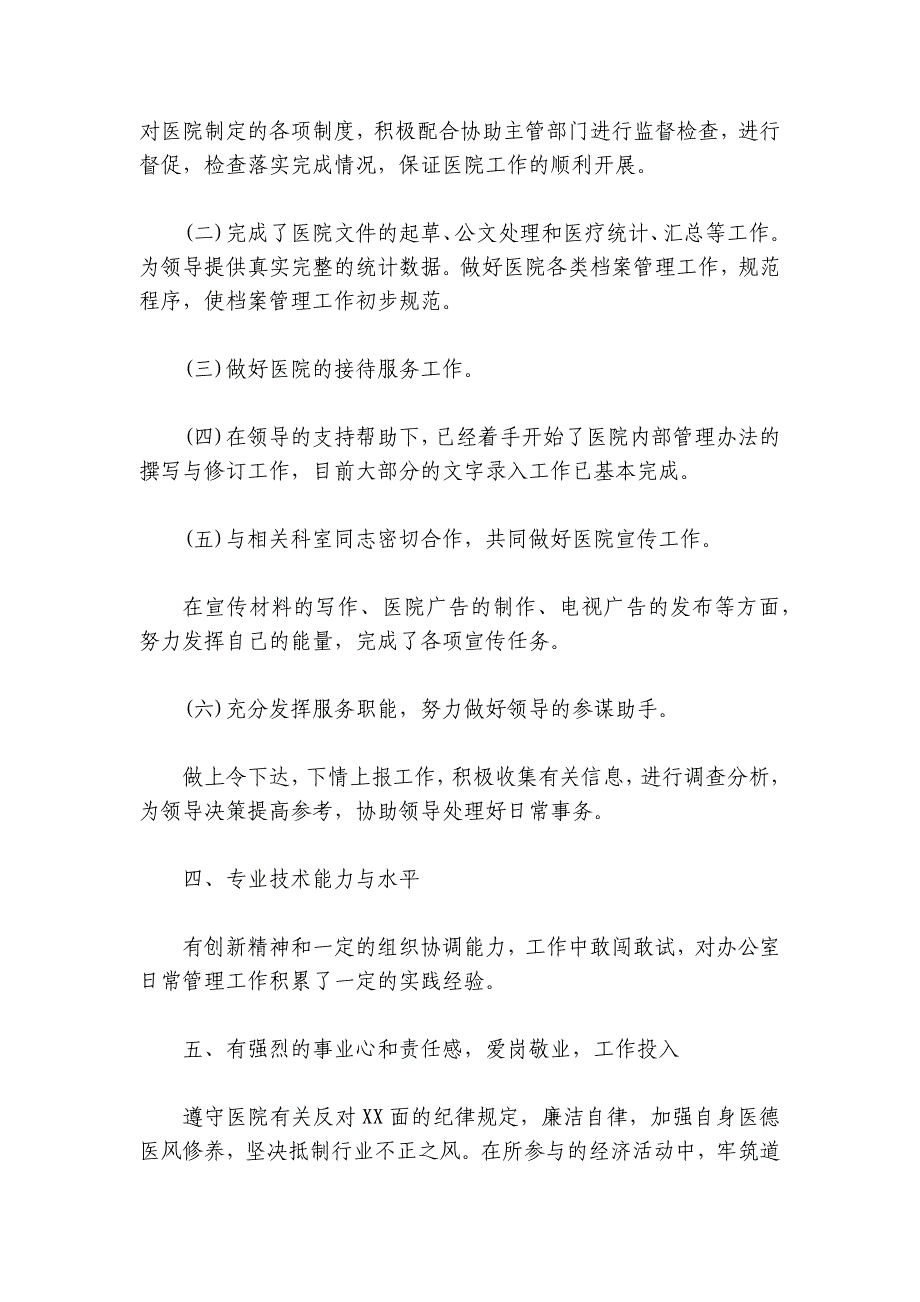 对医院制定的各项制度，积极配合协助主管部门进行监督检查，进行
督促，检查落实完成情况，保证医院工作的顺利开展。
(二)完成了医院文件的起草、公文处理和医疗统计、汇总等工作。
为领导提供真实完整的统计数据。做好医院各类档案管理工作，规范
程序，使档案管理工作初步规范。
(三)做好医院的接待服务工作。
(四)在领导的支持帮助下，已经着手开始了医院内部管理办法的
撰写与修订工作，目前大部分的文字录入工作已基本完成。
(五)与相关科室同志密切合作，共同做好医院宣传工作。
在宣传材料的写作、医院广告的制作、电视广告的发布等方面，
努力发挥自己的能量，完成了各项宣传任务。
(六)充分发挥服务职能，努力做好领导的参谋助手。
做上令下达，下情上报工作，积极收集有关信息，进行调查分析，
为领导决策提高参考，协助领导处理好日常事务。
四、专业技术能力与水平
有创新精神和一定的组织协调能力，工作中敢闯敢试，对办公室
日常管理工作积累了一定的实践经验。
五、有强烈的事业心和责任感，爱岗敬业，工作投入
遵守医院有关反对 XX 面的纪律规定，廉洁自律，加强自身医德
医风修养，坚决抵制行业不正之风。在所参与的经济活动中，牢筑道